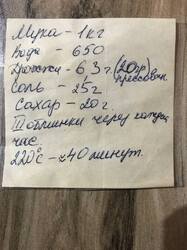 Мука - 1кг
Вода - 650
Дрожжи - 6,3 г. (20гр прессован.
Соль - 25г
Сахар - 20г.
III обминки через каждый
час.
220°C - ≈40 минут.